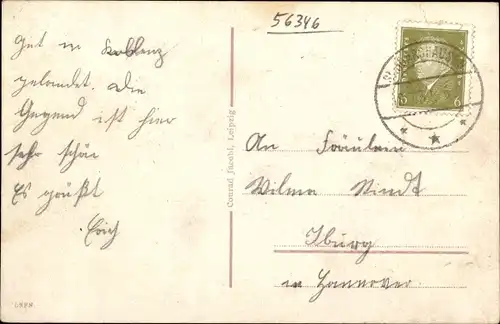 56346
Gut in Koblenz
gelandet. Die
Gegend ist hier
sehr schön
Es grüßt
Erich
Conrad Jacobi, Leipzig
6 6
An Fräulein
Wilma
Iburg
in Hannover.